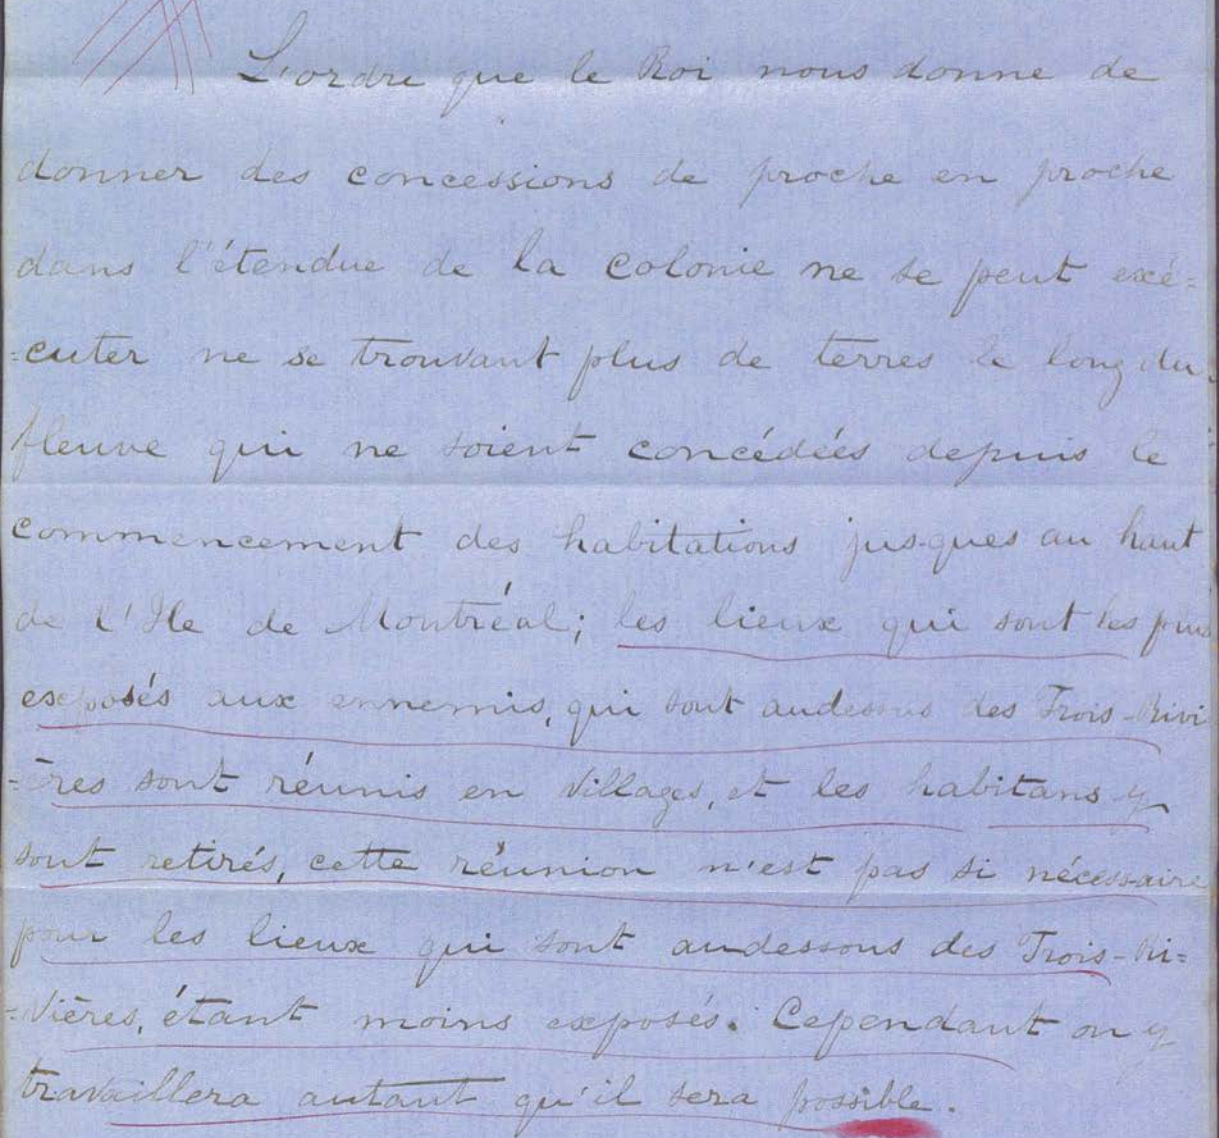 L'ordre que le Roi nous donne de
donner des concessions de proche en proche
dans l'étendue de la colonie ne se peut exé=
=cuter ne se trouvant plus de terres le long du
fleuve qui ne soient concédées depuis le
commencement des habitations jusques au haut
de l'Ile de Montréal; les lieux qui sont les plus
exposés aux ennemis, qui sont audessus des Trois-Rivi
=ères sont réunis en villages, et les habitans y
sont retirés, cette réunion n'est pas si nécessaire
pour les lieux qui sont audessous des Trois-Ri=
=vières, étant moins exposés. Cependant on y
travaillera autant qu'il sera possible.